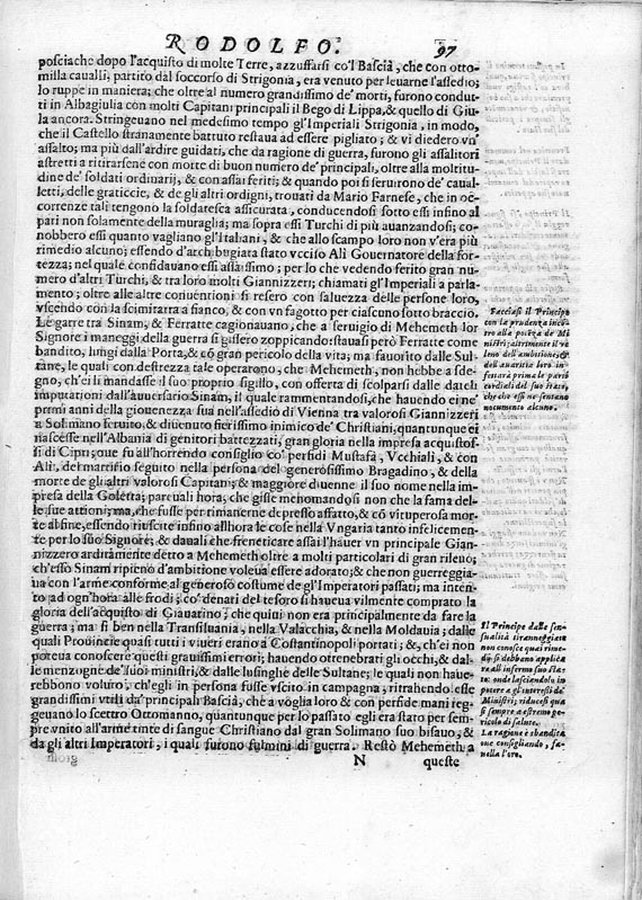 RODOLFO. 97
posciache dopo l'acquisto di molte Terre, azzuffarsi co'l Bascià, che con otto-
milla caualli, partito dal soccorso di Strigonia, era venuto per leuarne l'assedio;
lo ruppe in maniera; che oltre al numero grandissimo de' morti, furono condut-
ti in Albagiulia con molti Capitani principali il Bego di Lippa, & quello di Giu-
la ancora. Stringeuano nel medesimo tempo gl'Imperiali Strigonia, in modo,
che il Castello stranamente battuto restaua ad essere pigliato; & vi diedero vn'
assalto; ma più dall'ardire guidati, che da ragione di guerra, furono gli assalitori
astretti a ritirarsene con morte di buon numero de' principali, oltre alla moltitu-
dine de' soldati ordinarij, & con assai feriti; & quando poi si seruirono de' caual-
letti, delle graticcie, & de gli altri ordigni, trouati da Mario Farnese, che in oc-
correnze tali tengono la soldatesca assicurata, conducendosi sotto essi infino al
pari non solamente della muraglia; ma sopra essi Turchi di più auanzandosi; co-
nobbero essi quanto vagliano gl'Italiani, & che allo scampo loro non v'era più
rimedio alcuno; essendo d'archibugiata stato vcciso Alì Gouernatore della for-
tezza; nel quale confidauano essi assaissimo; per lo che vedendo ferito gran nu-
mero d'altri Turchi, & tra loro molti Giannizzeri; chiamati gl'Imperiali a parla-
mento; oltre alle altre conuentioni si resero con saluezza delle persone loro,
vscendo con la scimitarra a fianco, & con vn fagotto per ciascuno sotto braccio.
Le garre tra Sinam, & Ferratte cagionauano, che a seruigio di Mehemeth lor
Signore i maneggi della guerra si gissero zoppicando: stauasi però Ferratte come
bandito, lungi dalla Porta, & cõ gran pericolo della vita; ma fauorito dalle Sul-
tane, le quali con destrezza tale operarono, che Mehemeth, non hebbe a sde-
gno, ch'ei li mandasse il suo proprio sigillo, con offerta di scolparsi dalle dateli
imputationi dall'auuersario Sinam, il quale rammentandosi, che hauendo ei ne'
primi anni della giouenezza sua nell'assedio di Vienna tra valorosi Giannizzeri
a Solimano seruito, & diuenuto fierissimo inimico de' Christiani, quantunque ei
nascesse nell'Albania di genitori battezzati, gran gloria nella impresa acquistos-
si di Cipri; oue fu all'horrendo consiglio co' perfidi Mustafà, Vcchiali, & con
Alì, del martirio seguito nella persona del generosissimo Bragadino, & della
morte de gli altri valorosi Capitani; & maggiore diuenne il suo nome nella im-
presa della Goletta; paruali hora, che gisse menomandosi non che la fama del-
le sue attioni; ma, che fusse per rimanerne depresso affatto, & cõ vituperosa mor-
te al fine, essendo riuscite infino allhora le cose nella Vngaria tanto infelicemen-
te per lo suo Signore; & dauali che freneticare assai l'hauer vn principale Gian-
nizzero arditamente detto a Mehemeth oltre a molti particolari di gran rileuo;
ch'esso Sinam ripieno d'ambitione voleua essere adorato; & che non guerreggia-
ua con l'arme conforme al generoso costume de gl'Imperatori passati; ma inten-
to ad ogn'hora alle frodi; co' denari del tesoro si haueua vilmente comprato la
gloria dell'acquisto di Giauarino; che quiui non era principalmente da fare la
guerra; ma sì ben nella Transiluania, nella Valacchia, & nella Moldauia; dalle
quali Prouincie quasi tutti i viueri erano a Costantinopoli portati; &, ch'ei non
poteua conoscere questi grauissimi errori; hauendo ottenebrati gli occhi, & dal-
le menzogne de' suoi ministri, & dalle lusinghe delle Sultane; le quali non haue-
rebbono voluto, ch'egli in persona fusse vscito in campagna, ritrahendo esse
grandissimi vtili da' principali Bascià, che a voglia loro & con perfide mani reg-
geuano lo scettro Ottomanno, quantunque per lo passato egli era stato per sem-
pre vnito all'arme tinte di sangue Christiano dal gran Solimano suo bisauo, &
da gli altri Imperatori, i quali furono fulmini di guerra. Restò Mehemeth a
N queste
Facciasi il Principe
con la prudenza incõ-
tro alla possãza de' Mi
nistri; altrimente il ve
leno dell'ambitione, &
dell'auaritia loro in-
festarà prima le parti
cordiali del suo stato,
che che esso ne sentano
nocumento alcuno.
Il Principe dalle sen-
sualità tiranneggiato
non conosce quai rime-
di si debbano applica
re all'infermo suo sta-
to: onde lasciandolo in
potere a gl'interessi de'
Ministri; riducesi qua
si sempre a estremo pe-
ricolo di salute.
La ragione è sbandita
oue consigliando, fa-
uella l'oro.